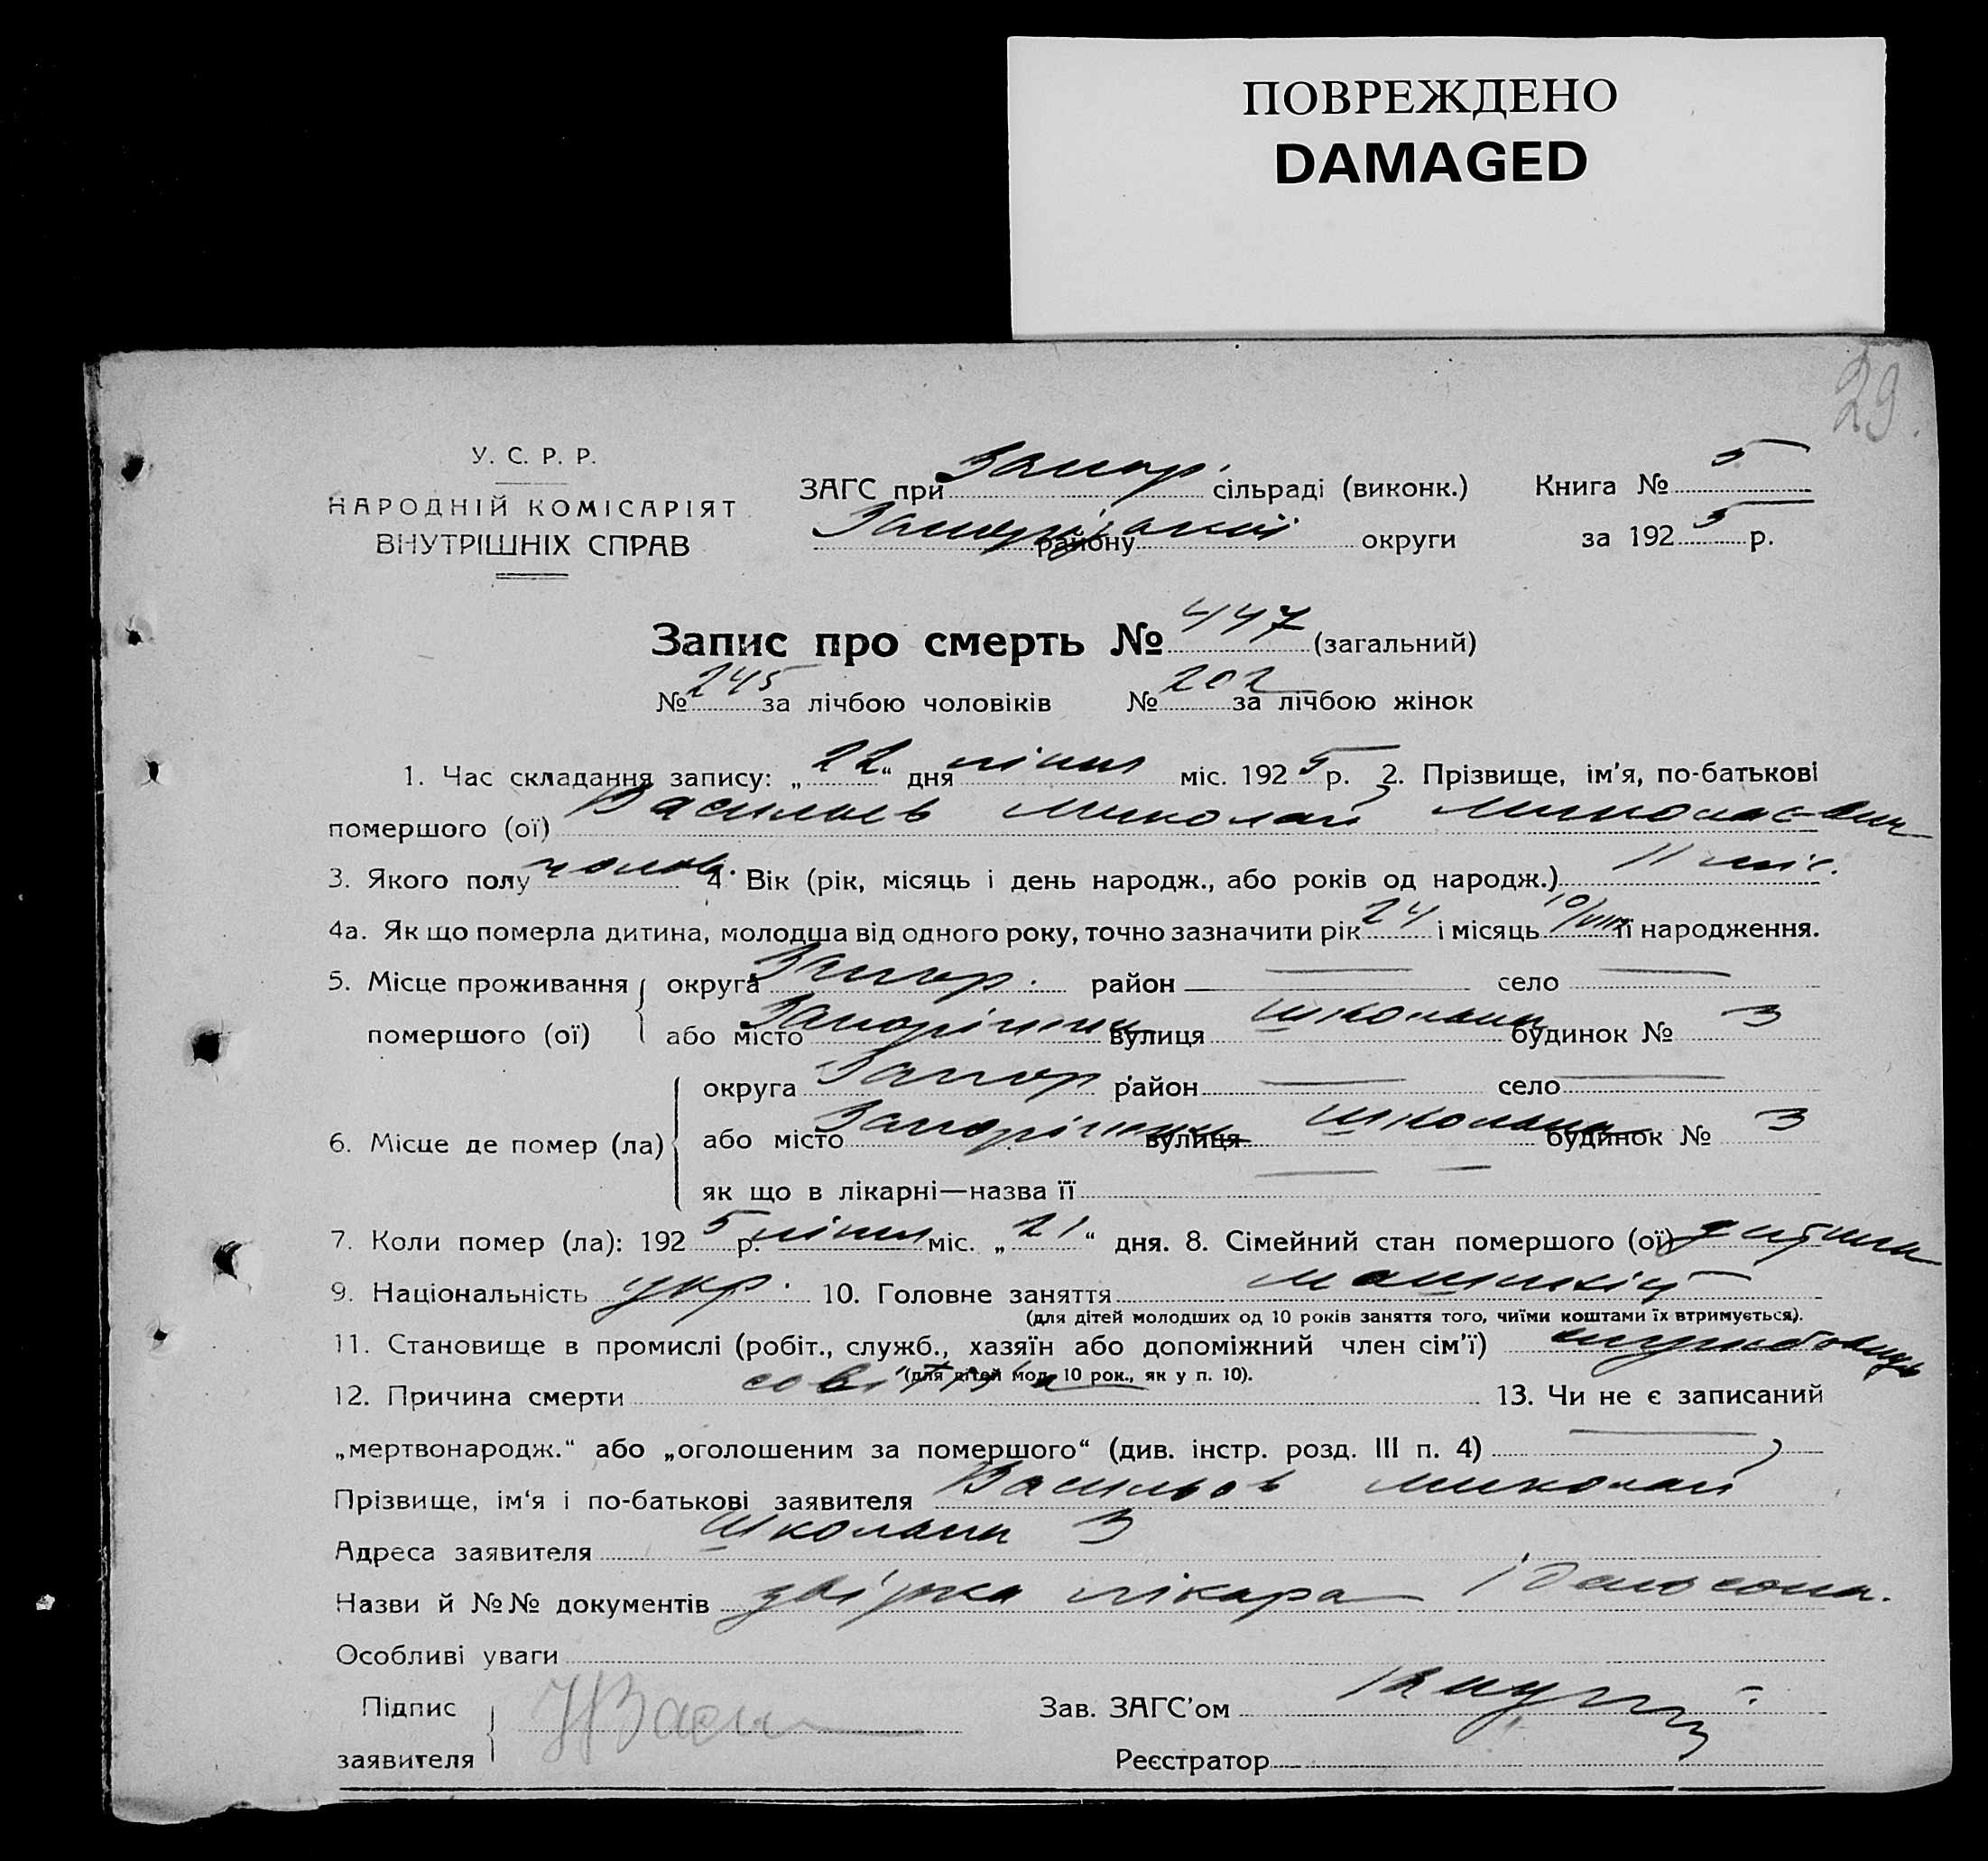 ПОВРЕЖДЕНО
DAMAGED
29.
У. С. Р. Р.
НАРОДНІЙ КОМІСАРІЯТ
ВНУТРІШНІХ СПРАВ
ЗАГС при Запор. сільраді (виконк.) Книга № 5
Запорізької району округи за 1925 р.
Запис про смерть № 447 (загальний)
№ 245 за лічбою чоловіків № 202 за лічбою жінок
1. Час складання запису: „22“ дня липня міс. 1925 р. 2. Прізвище, ім'я, по-батькові
помершого (ої) Васильєв Миколай Миколаєвич
3. Якого полу чолов. 4. Вік (рік, місяць і день народж., або років од народж.) 11 міс.
4а. Як що померла дитина, молодша від одного року, точно зазначити рік 24 і місяць 10/VIII її народження.
5. Місце проживання округа Запор. район — село —
помершого (ої) або місто Запоріжжя вулиця Школьна будинок № 3
округа Запор. район — село —
6. Місце де помер (ла) або місто Запоріжжя вулиця Школьна будинок № 3
як що в лікарні—назва її — —
7. Коли помер (ла): 1925 р. липня міс. „21“ дня. 8. Сімейний стан помершого (ої) дитина
9. Національність укр. 10. Головне заняття
(для дітей молодших од 10 років заняття того, чиїми коштами їх втримується).
11. Становище в промислі (робіт., служб., хазяїн або допоміжний член сім'ї)
(для дітей мол. 10 рок., як у п. 10).
12. Причина смерти 13. Чи не є записаний
„мертвонародж.“ або „оголошеним за помершого“ (див. інстр. розд. III п. 4) —
Прізвище, ім'я і по-батькові заявителя Васильов Миколай
Адреса заявителя Школьна 3
Назви й №№ документів лікара
Особливі уваги
Підпис Зав. ЗАГС'ом
заявителя Реєстратор